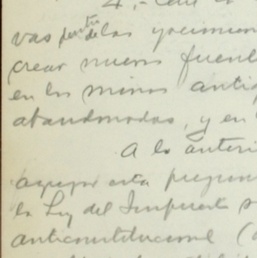 4.- 
vas de las yacimien
crear nuevas fuent
en las minas antig
abandonadas, y en
A lo anteri
agregar esta pregun
la Ley del Impuesto s
anticonstitucional (